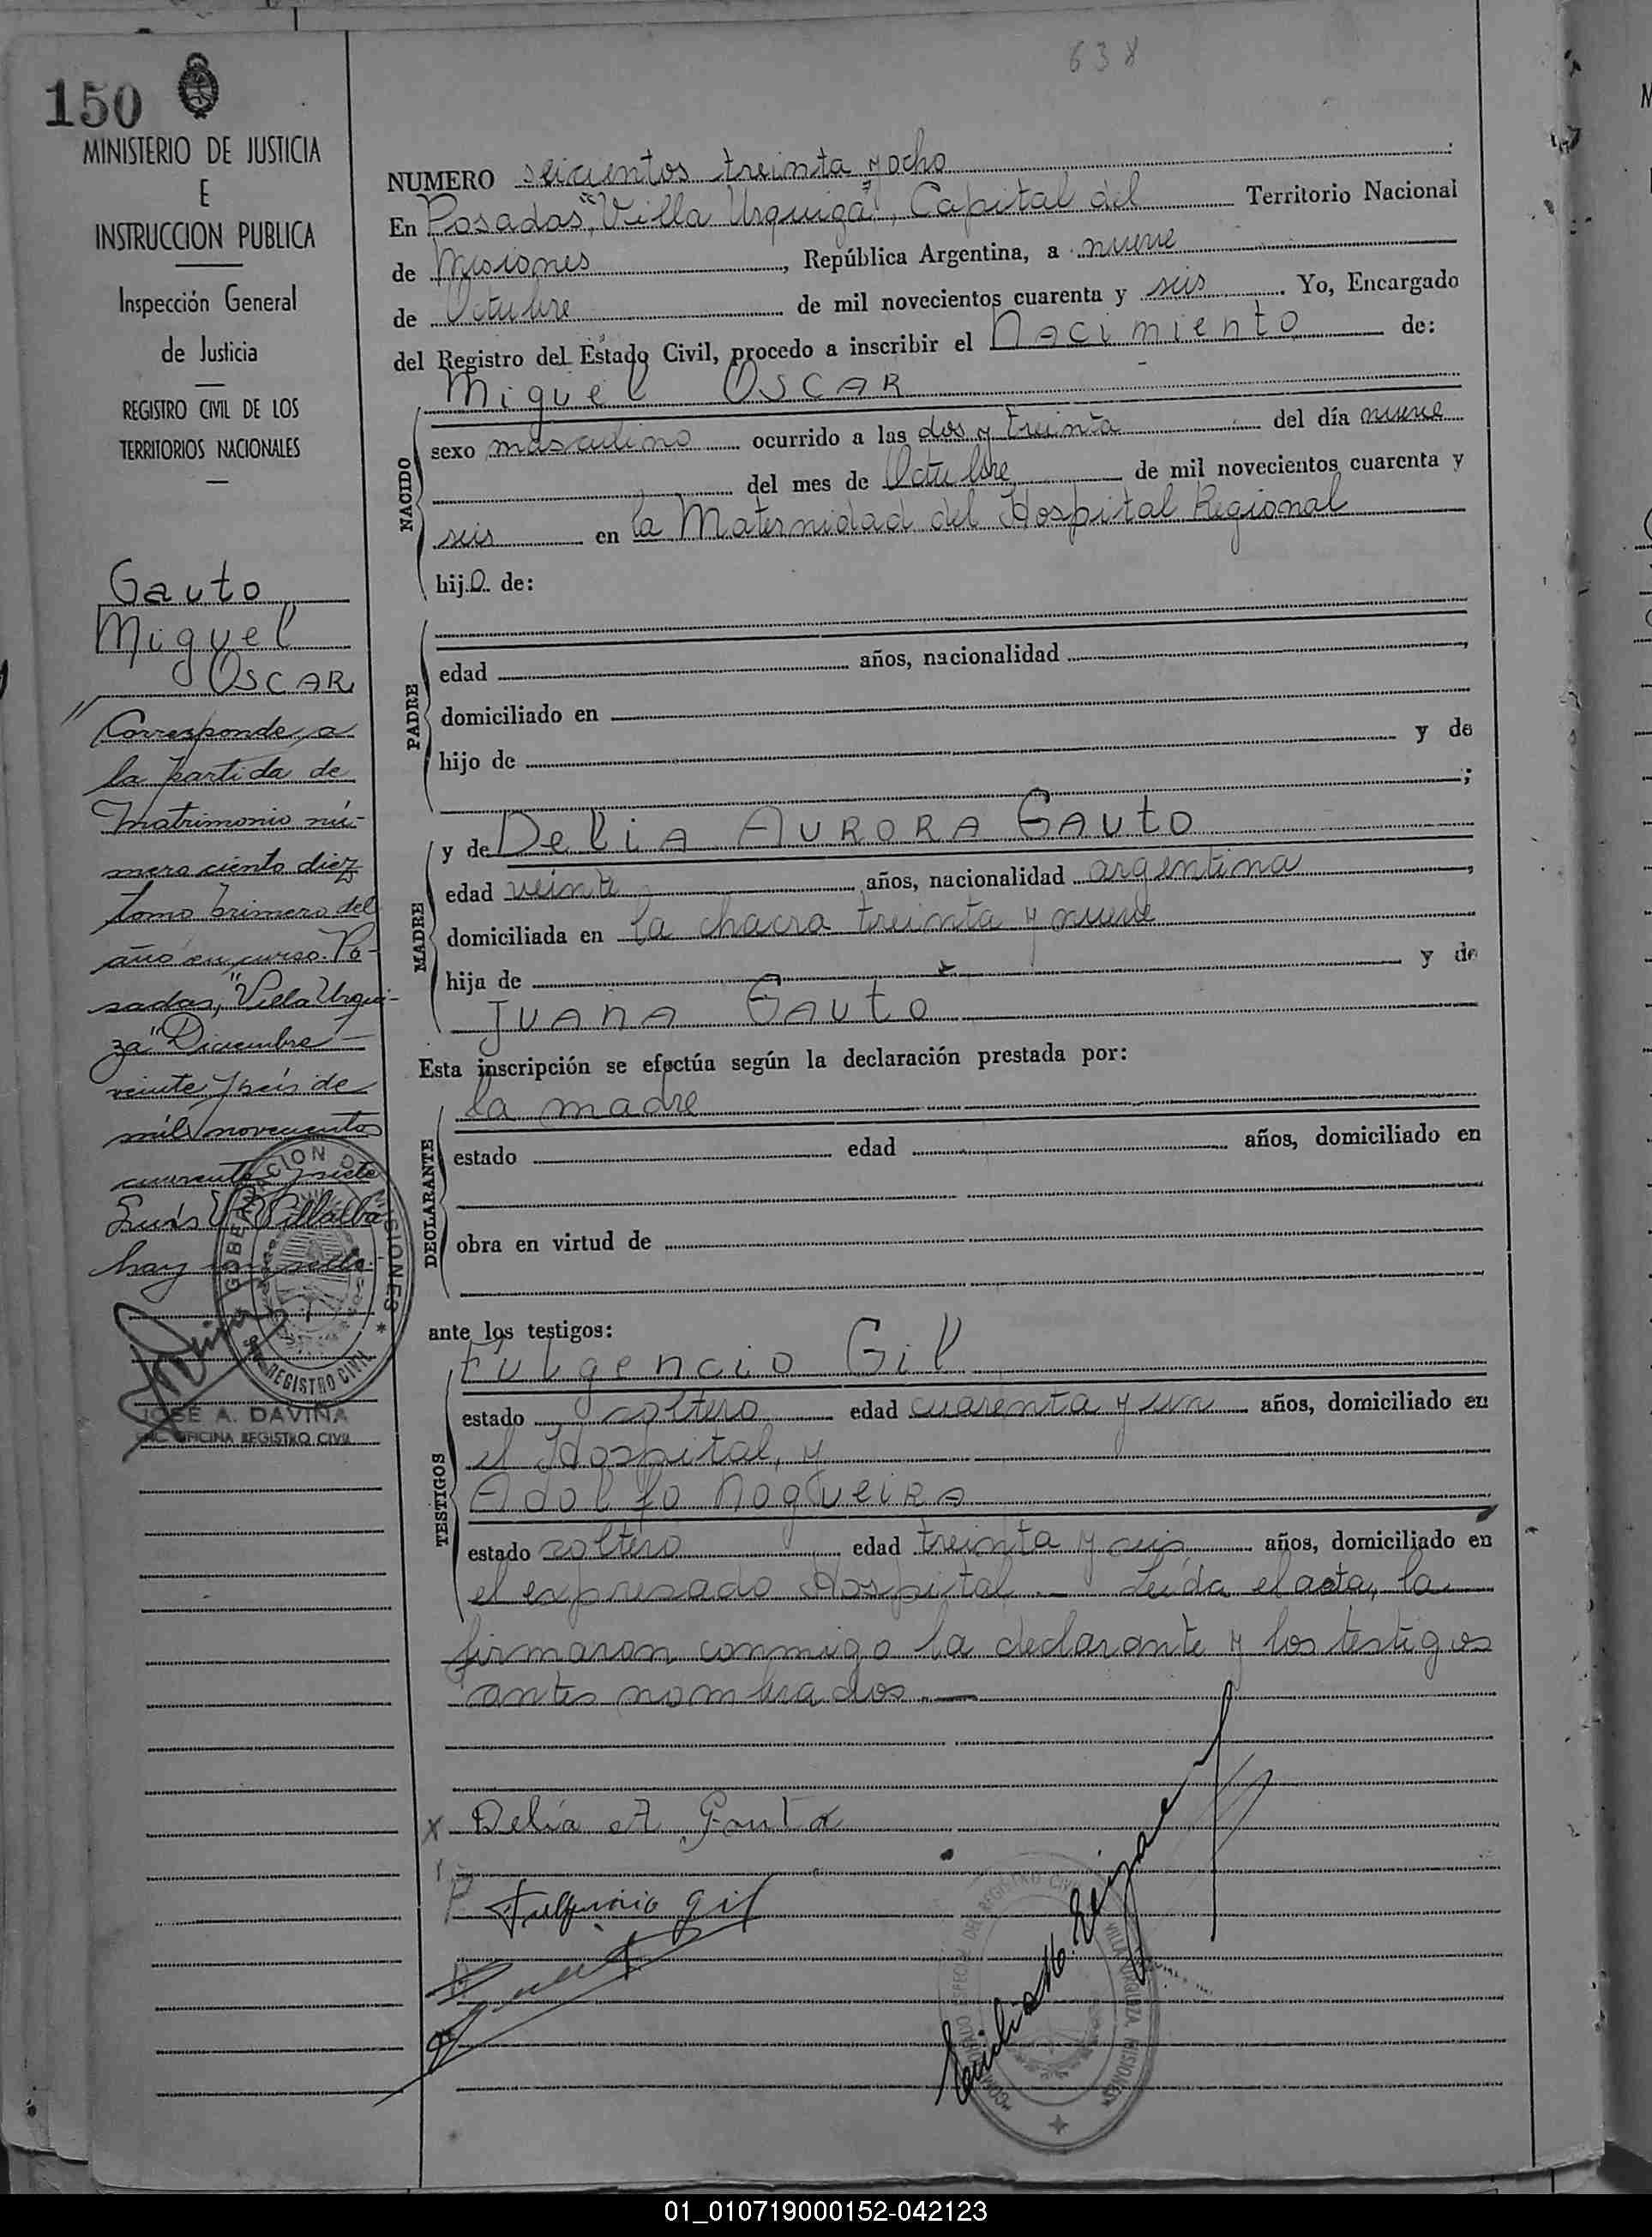 638
150
MINISTERIO DE JUSTICIA
E
INSTRUCCION PUBLICA
Inspección General
de Justicia
REGISTRO CIVIL DE LOS
TERRITORIOS NACIONALES
Gauto
Miguel
OSCAR
Corresponde a
la partida de
Matrimonio nú-
mero ciento diez
tomo primero del
año en curso. Po-
sadas, "Villa Urqui-
za" Diciembre
veinte y seis de
mil novecientos
cuarenta y siete
Luis V. Villalba
hay un sello.
GOBERNACION DE MISIONES
REGISTRO CIVIL
JOSE A. DAVIÑA
ENC. OFICINA REGISTRO CIVIL
NUMERO seicientos treinta y ocho
En Posadas, "Villa Urquiza", Capital del Territorio Nacional
de Misiones, República Argentina, a nueve
de Octubre de mil novecientos cuarenta y seis. Yo, Encargado
del Registro del Estado Civil, procedo a inscribir el Nacimiento de:
Miguel OSCAR
NACIDO
sexo masculino ocurrido a las dos y treinta del día nueve
del mes de Octubre de mil novecientos cuarenta y
seis en la Maternidad del Hospital Regional
hijo de:
PADRE
edad años, nacionalidad
domiciliado en
hijo de y de
;
MADRE
y de Delia AURORA GAUTO
edad veinte años, nacionalidad argentina,
domiciliada en la chacra treinta y nueve
hija de y de
JUANA GAUTO
Esta inscripción se efectúa según la declaración prestada por:
DECLARANTE
la madre
estado edad años, domiciliado en
obra en virtud de
ante los testigos:
TESTIGOS
Fulgencio Gil
estado soltero edad cuarenta y un años, domiciliado en
el Hospital, y
Adolfo Nogueira
estado soltero edad treinta y seis años, domiciliado en
el expresado Hospital.- Leída el acta, la
firmaron conmigo la declarante y los testigos
antes nombrados.-
x Delia A Gauto
Fulgencio gil
DEL REGISTRO CIVIL
VILLA URQUIZA MISIONES
01_010719000152-042123